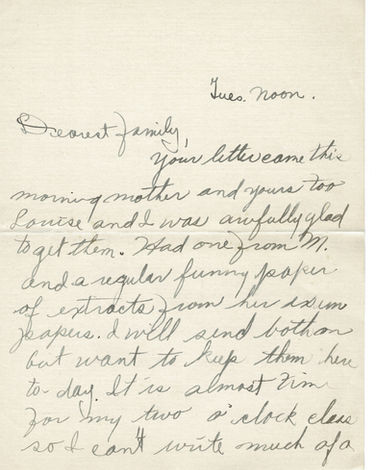 Tues. Noon.
Dearest family,
Your letter came this
morning mother and yours too
Louise and I was awfully glad
to get them. Had one from M.
and a regular funny paper
of extracts from her exam
papers. I will send both on
but want to keep them here
to-day. It is almost time
for my two o'clock class
so I can't write much of a